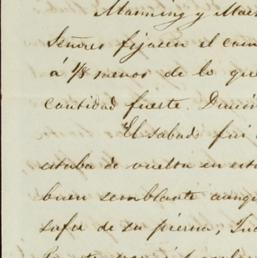 Manning y Mac
Señores fijasen el cam
á 1/8 menos de lo que
cantidad fuerte.
El sabado fui
estaba de vuelta en est
buen semblante aunqu
de su pierna;